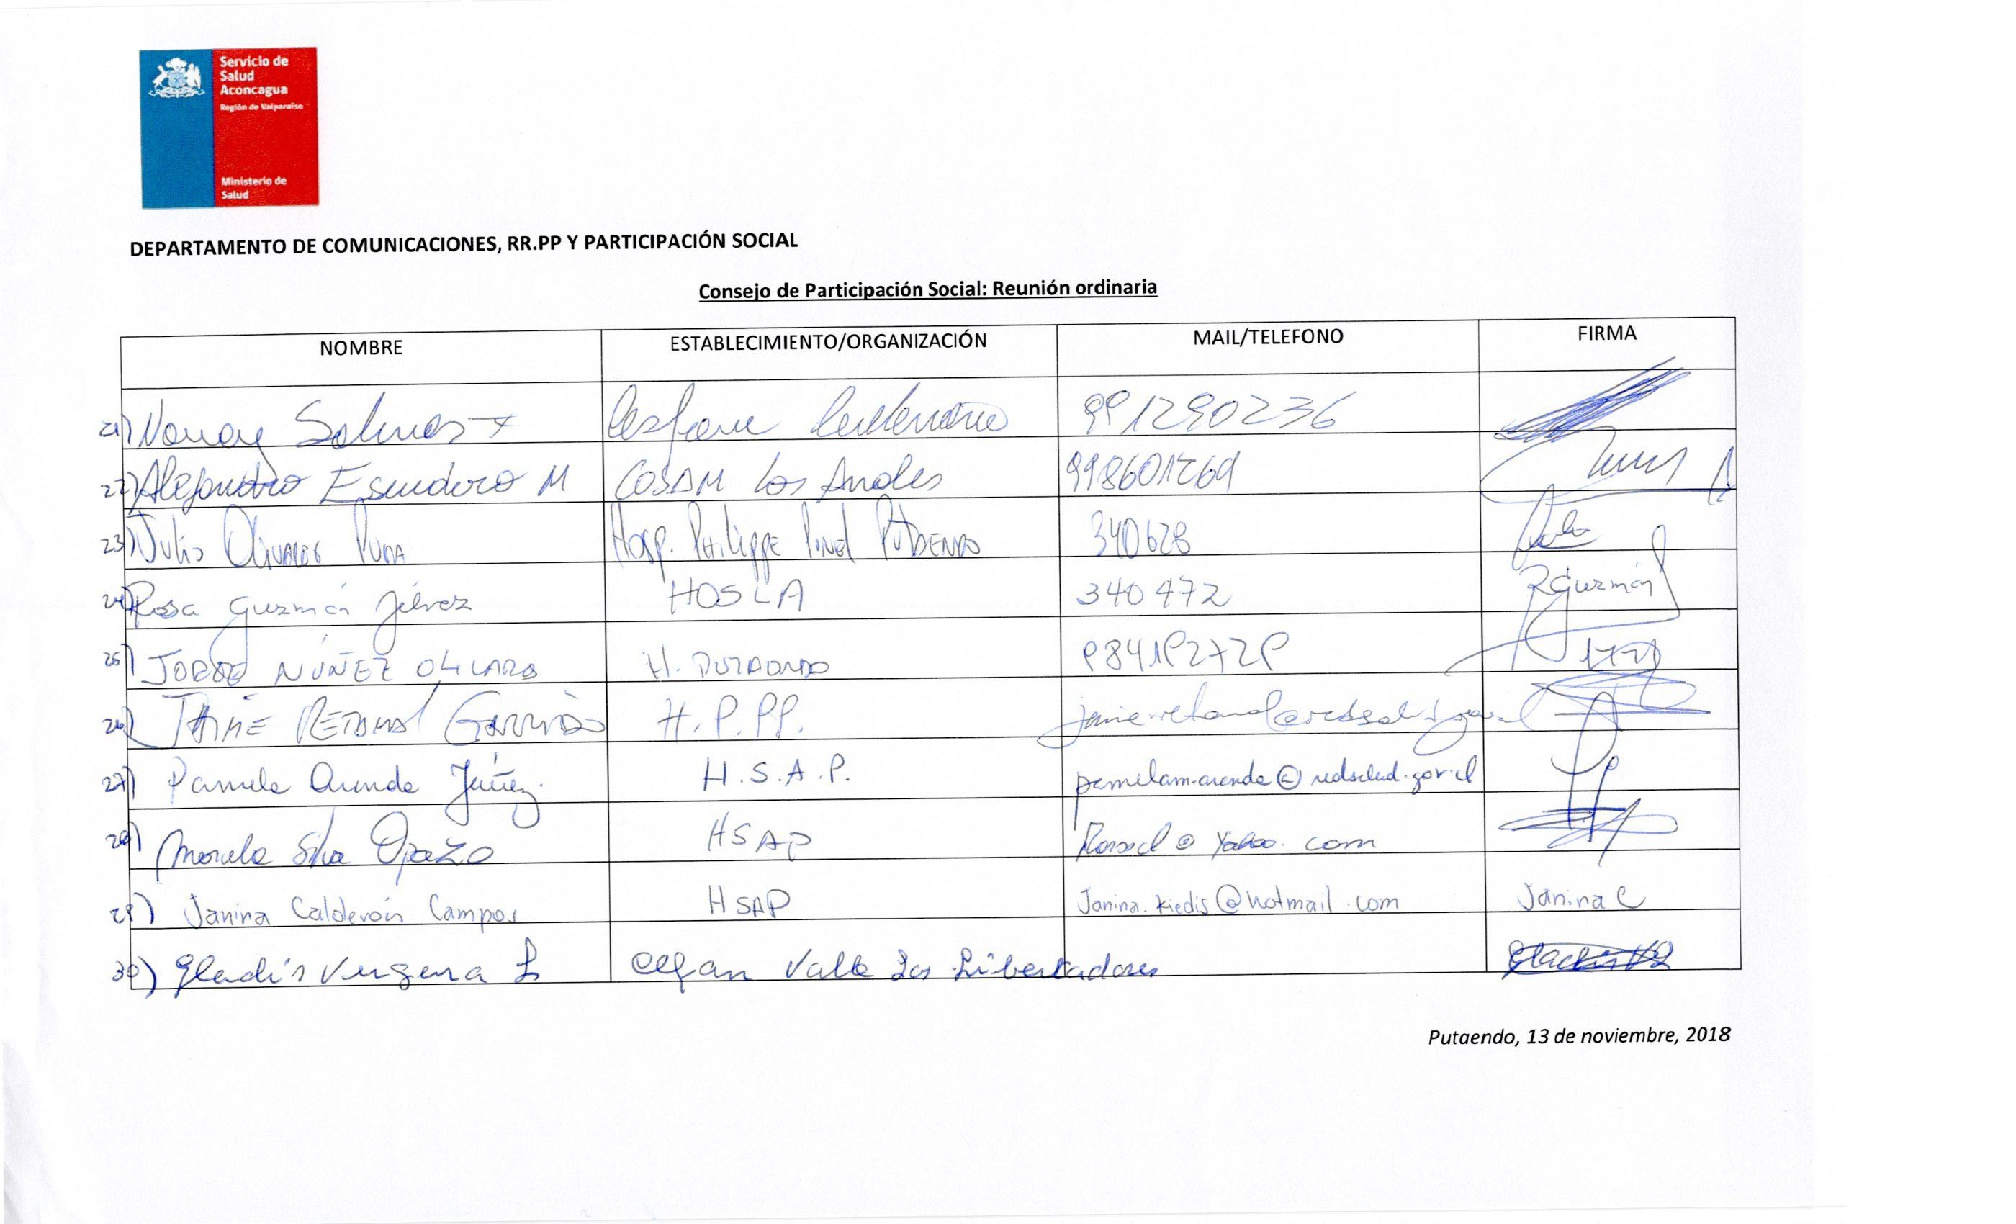 Servicio de
Salud
Aconcagua
Región de Valparaíso
Ministerio de
Salud
DEPARTAMENTO DE COMUNICACIONES, RR.PP Y PARTICIPACIÓN SOCIAL
Consejo de Participación Social: Reunión ordinaria
NOMBRE ESTABLECIMIENTO/ORGANIZACIÓN MAIL/TELEFONO FIRMA
21) Nancy Salinas 991290236
22) Alejandro Escudero M COSAM Los Andes 998601269
23) Julio Olivares Hosp. Philippe Pinel Putaendo 340628
24) Rosa Guzmán Jélvez HOSLA 340472 RGuzmán
25) JORGE NÚÑEZ H. PUTAENDO
26) JAIME RETAMAL GARRIDO H.P.PP.
27) Pamela Aranda Núñez H.S.A.P. pamelam.aranda@redsalud.gov.cl
28) Marcela Silva Opazo HSAP @ Yahoo.com
29) Janina Calderón Campos HSAP Janina.kiedis@hotmail.com Janina C
30) Gladis Vergara L Valle Los Libertadores
Putaendo, 13 de noviembre, 2018